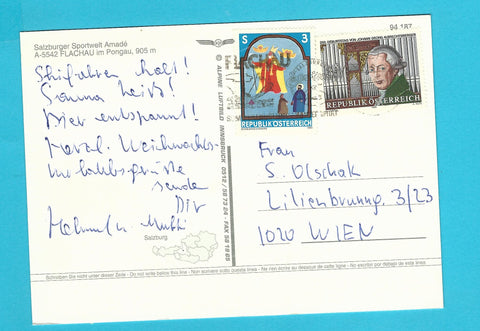 Salzburger Sportwelt Amadé
A-5542 FLACHAU im Pongau, 905 m
94 187
Skifahren halt!
Sauna heiß!
Bier entspannt!
Weihnachts-
urlaubsgrüße
sendet
Dir
Salzburg
© ALPINE LUFTBILD INNSBRUCK 0512 / 58 73 04 - FAX 58 18 65
S 3
REPUBLIK ÖSTERREICH
REPUBLIK ÖSTERREICH
Frau
S. Olschak
Lilienbrunng. 3/23
1020 WIEN
Schreiben Sie nicht unter dieser Zeile - Do not write below this line - Non scrivere sotto questa linea - Ne rien écrire au dessous de cette ligne - No escribir por debajo de esta línea